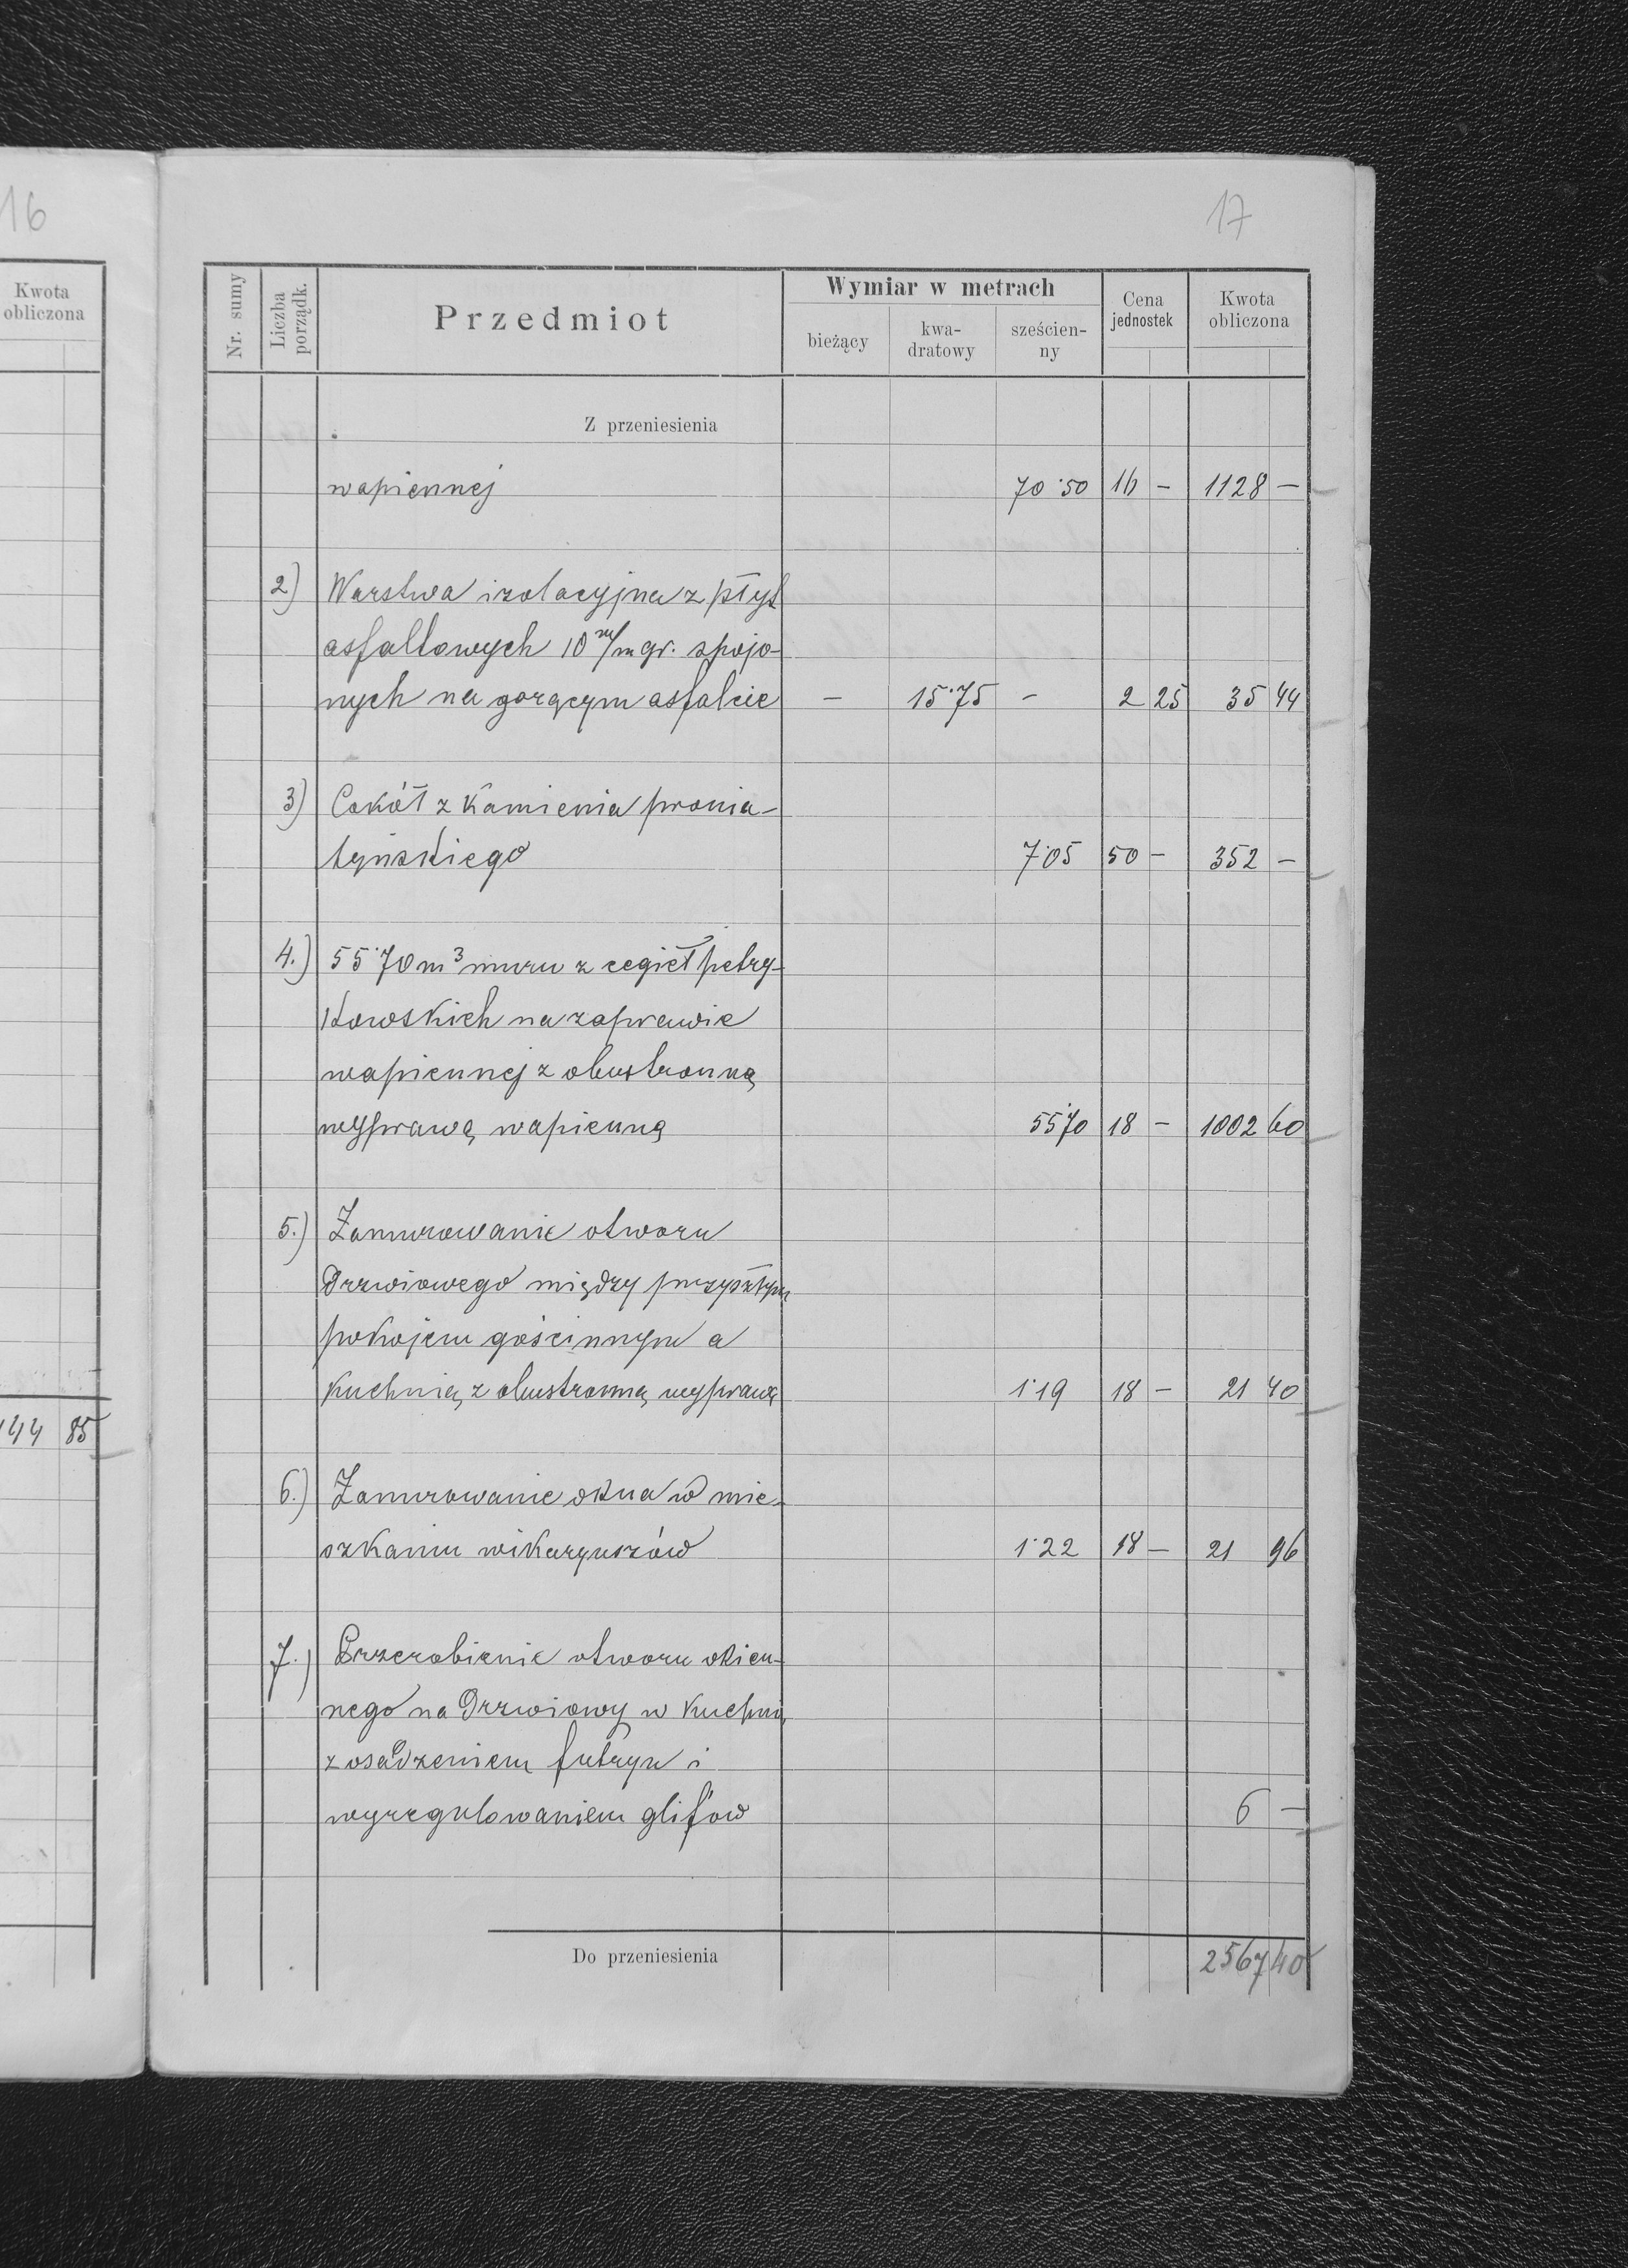 16
Kwota
obliczona
144 85
17
Nr. sumy
Liczba
porządk.
Przedmiot
Wymiar w metrach
bieżący
kwa-
dratowy
sześcien-
ny
Cena
jednostek
Kwota
obliczona
Z przeniesienia
wapiennej 70·50 16 – 1128 –
2) Warstwa izolacyjna z płyt
asfaltowych 10 m/m gr. spojo-
nych na gorącym asfalcie – 15·75 – 2 25 35 44
3) Cokół z kamienia pronia-
tyńskiego 7·05 50 – 352 –
4.) 55·70 m³ muru z cegieł petry-
kowskich na zaprawie
wapiennej z obustronną
wyprawą wapienną 55·70 18 – 1002 60
5.) Zamurowanie otworu
drzwiowego między przyszłym
pokojem gościnnym a
kuchnią z obustronną wyprawą 1·19 18 – 21 40
6.) Zamurowanie okna w mie-
szkaniu wikaryuszów 1·22 18 – 21 96
7.) Przerobienie otworu okien-
nego na drzwiowy w kuchni
z osadzeniem futryn i
wyregulowaniem glifów 6 –
Do przeniesienia 2567 40